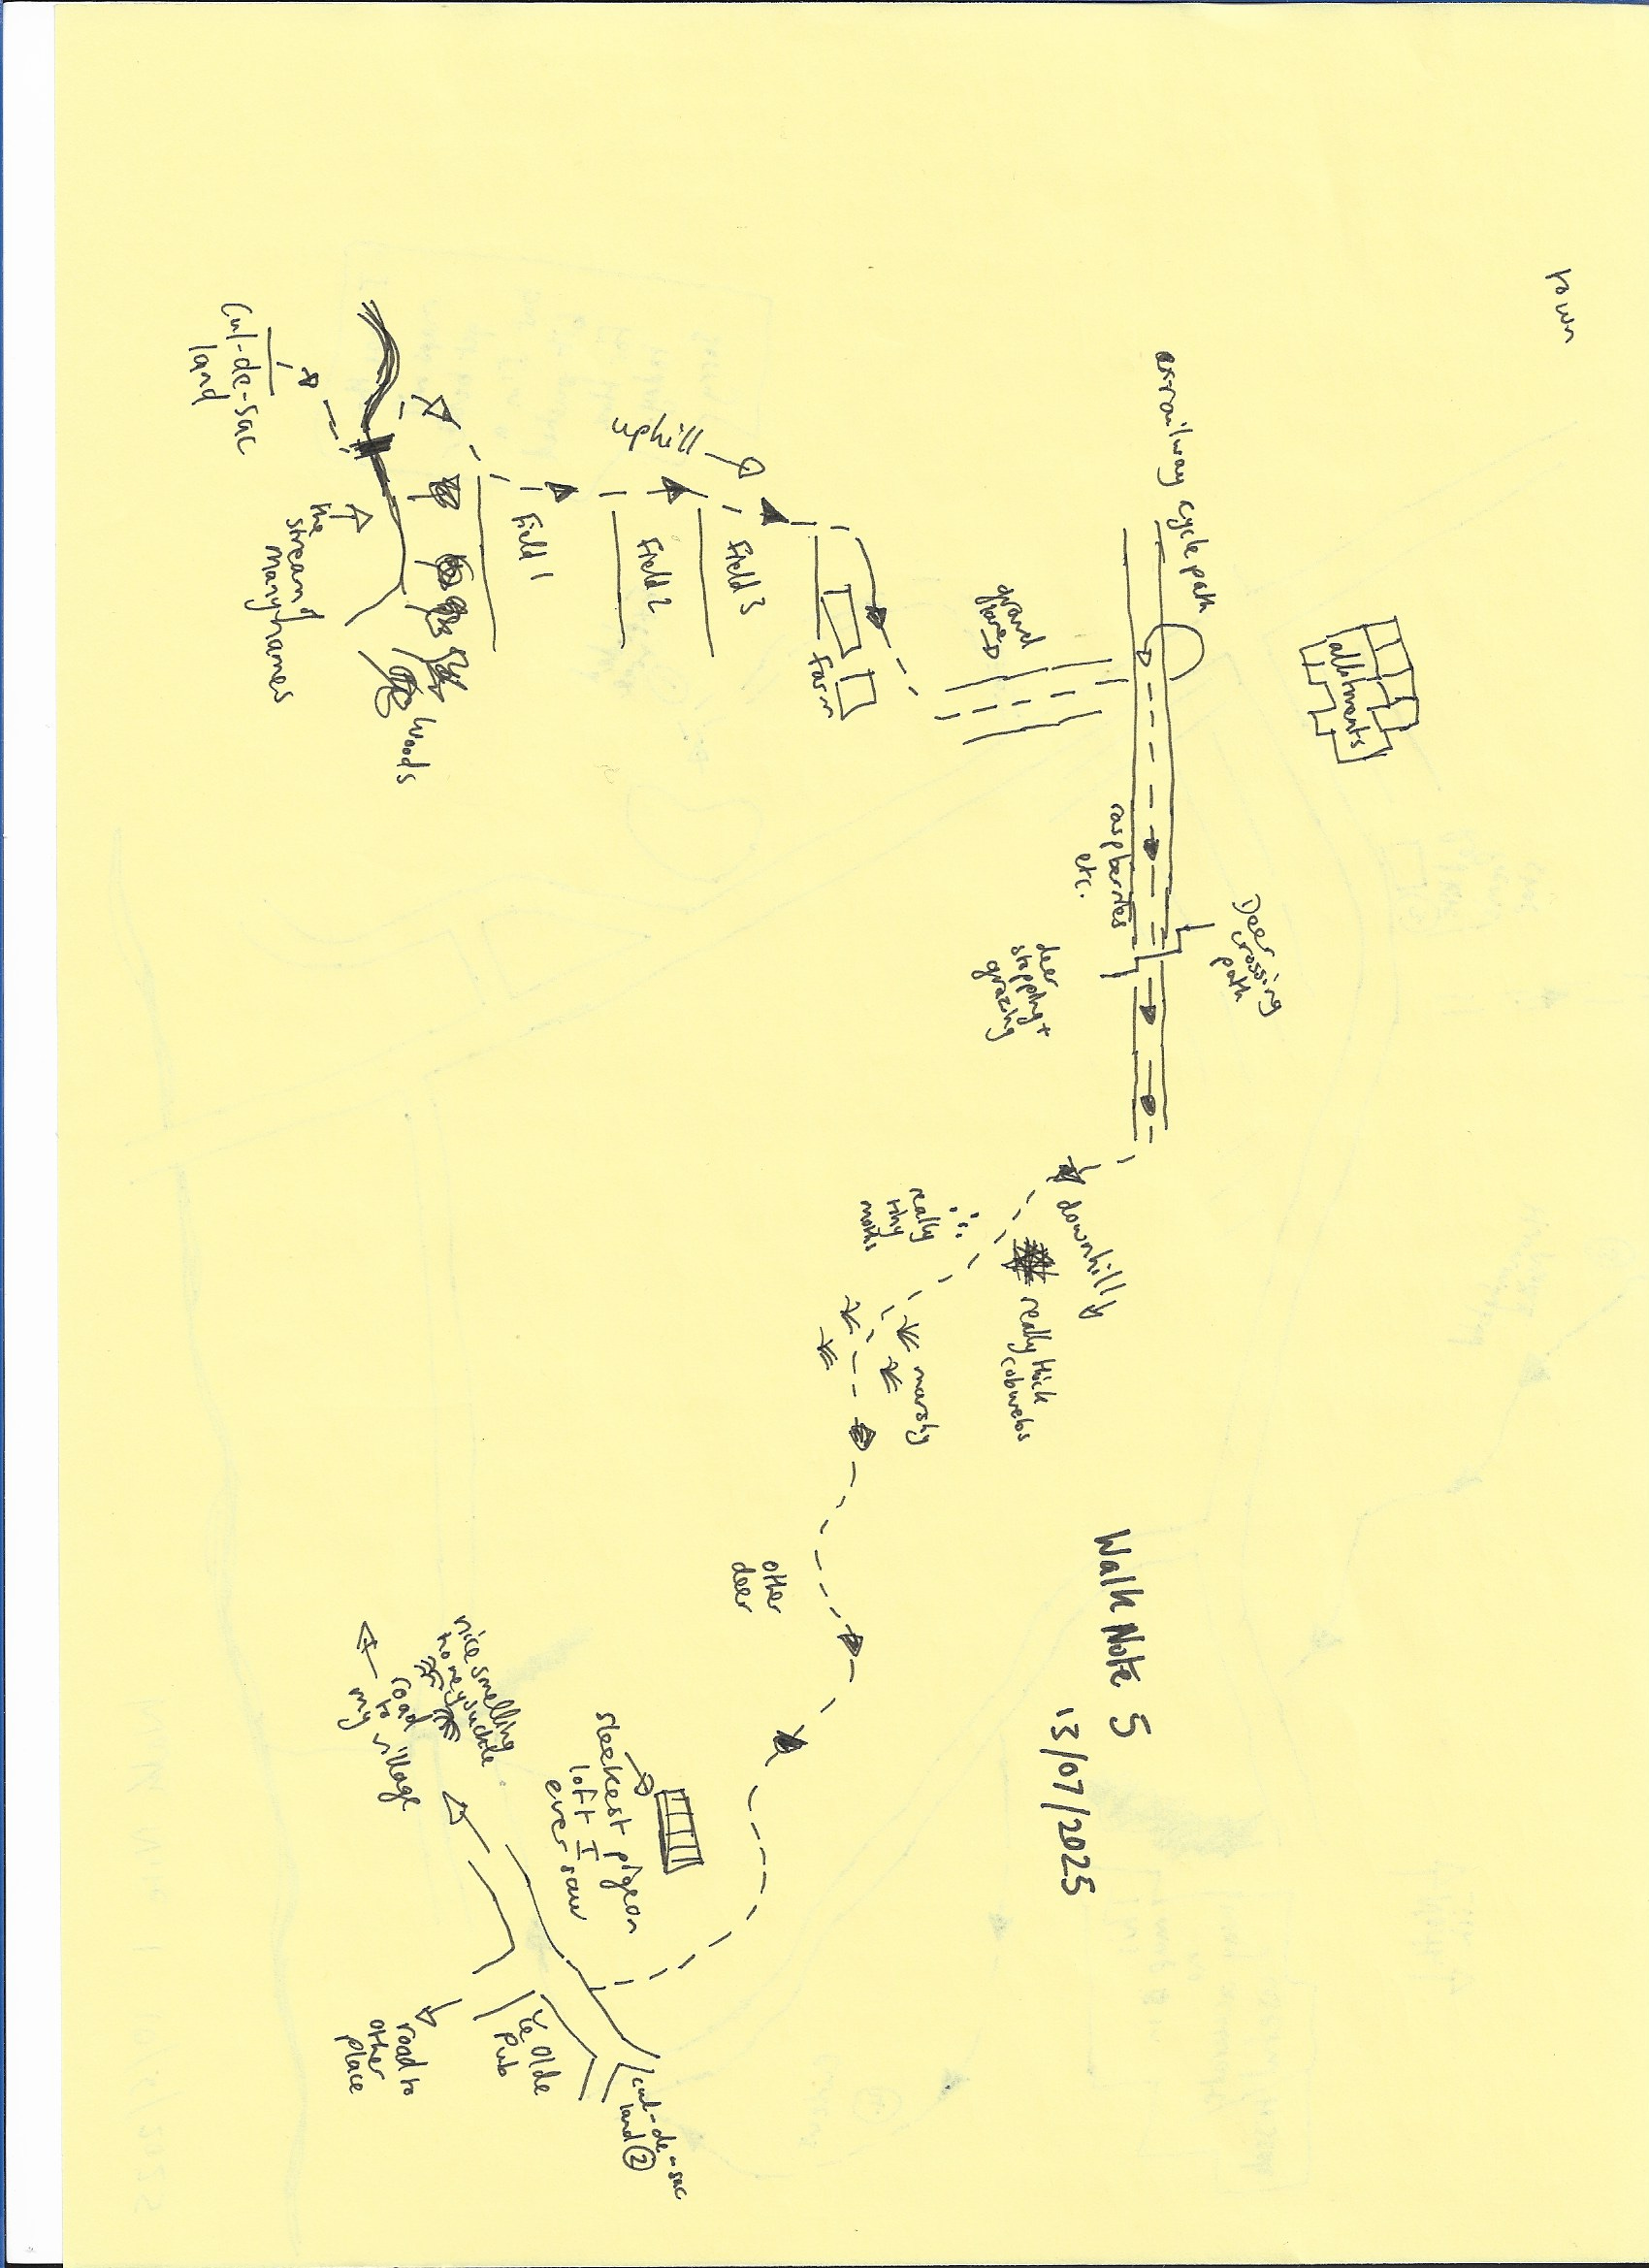 town
allotments
ex-railway cycle path
Deer
crossing
path
raspberries
etc.
deer
stopping +
grazing
grand
lane
uphill
farm
Field 3
Field 2
Field 1
woods
the
stream of
many names
Cul-de-sac
land
downhill
really thick
cobwebs
really
tiny
moths
marshy
Walk Note 5
13/07/2025
other
deer
sleekest pigeon
loft I
ever saw
nice smelling
honeysuckle
road
to
my village
cul-de-sac
land 2
Ye Olde
Pub
road to
other
place